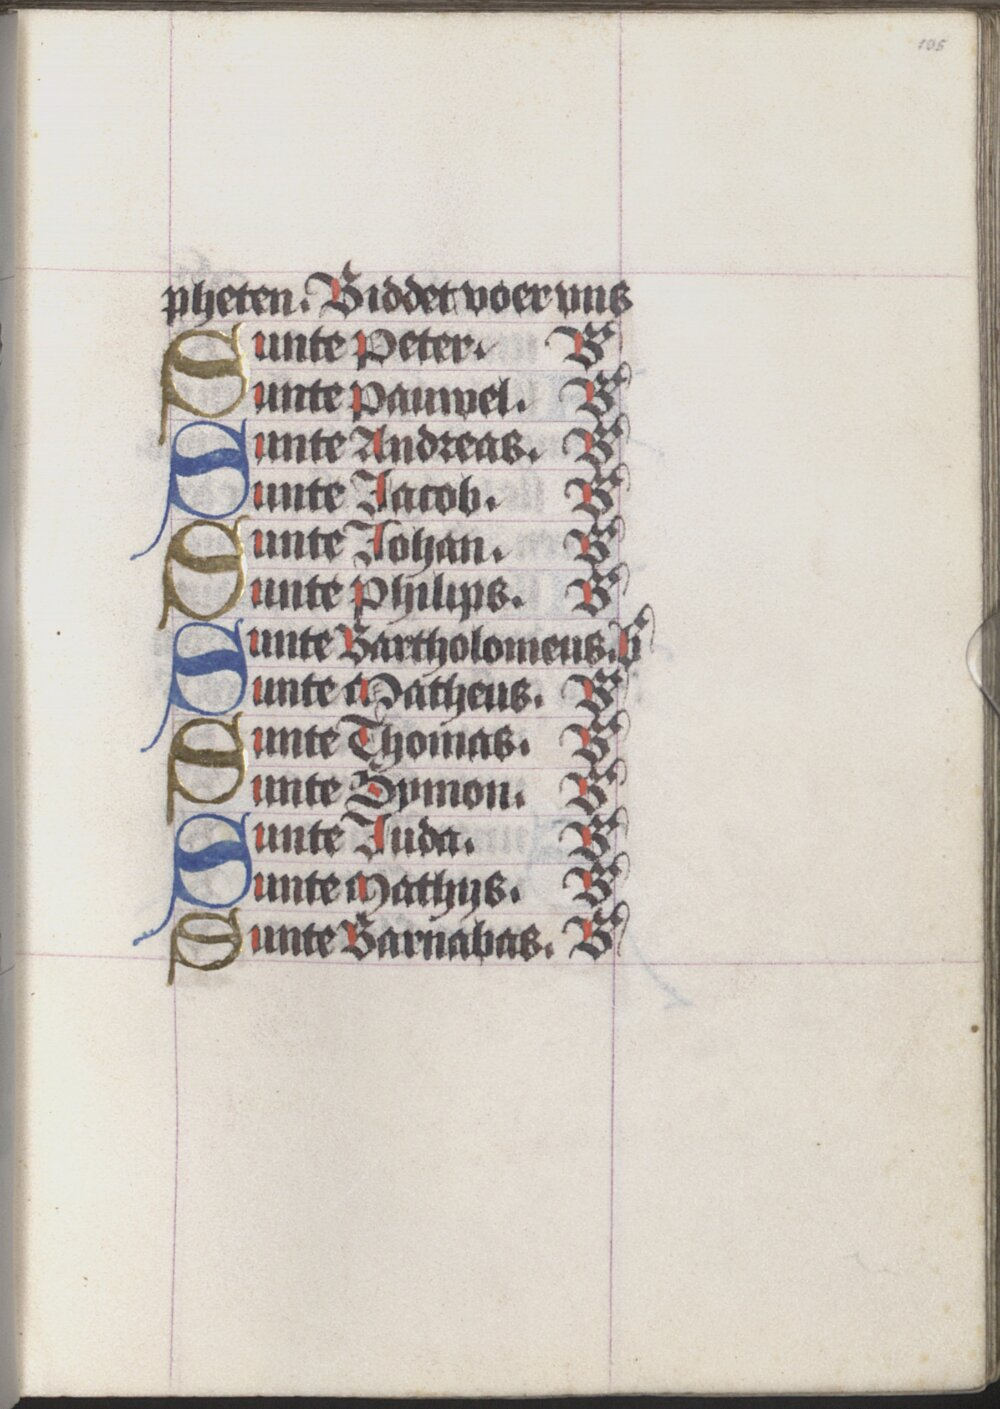 105
pheten. Biddet voer vns
Sunte Peter. B
Sunte Pauwel. B
Sunte Andreas. B
Sunte Jacob. B
Sunte Johan. B
Sunte Philips. B
Sunte Bartholomeus. b
Sunte Matheus. B
Sunte Thomas. B
Sunte Symon. B
Sunte Juda. B
Sunte Mathijs. B
Sunte Barnabas. B